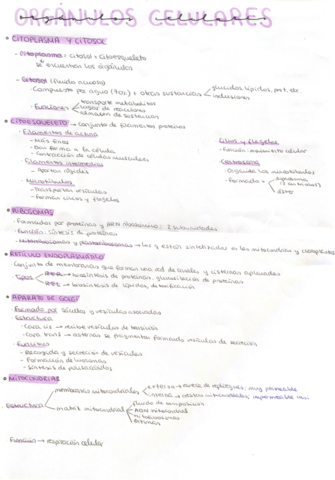 ORGÁNULOS CELULARES
• CITOPLASMA Y CITOSOL
- Citoplasma = citosol + citoesqueleto
se encuentran los orgánulos
- Citosol (fluido acuoso)
- Compuesto por agua (70%) + otras sustancias
glúcidos, lípidos, prot, etc.
inclusiones
- Funciones
transporte metabolitos
lugar de reacciones
almacén de sustancias
• CITOESQUELETO → conjunto de filamentos proteicos
- Filamentos de actina
- Más finos
- Dan forma a la célula
- Contracción de células musculares
- Filamentos intermedios
- Aportan rigidez
- Microtúbulos
- Transportan vesículas
- Forman cilios y flagelos
- Cilios y flagelos
- Función: movimiento celular
- Centrosoma
- Organiza los microtúbulos
- Formado
(2 centriolos)
• RIBOSOMAS
- Formados por proteínas y ARN 2 subunidades
- Función: síntesis de proteínas
- los q están sintetizados en las mitocondrias y cloroplastos
• RETÍCULO ENDOPLASMÁTICO
- Conjunto de membranas que forman una red de sáculos y cisternas aplanadas
- Tipos
RER → biosíntesis de proteínas, glucosilación de proteínas
REL → biosíntesis de lípidos, detoxificación
• APARATO DE GOLGI
- Formado por sáculos y vesículas asociadas
- Estructura
- Cara cis → recibe vesículas de
- Cara trans → cisternas se fragmentan formando vesículas de secreción
- Funciones
- Recogida y secreción de vesículas
- Formación de lisosomas
- Síntesis de polisacáridos
• MITOCONDRIAS
- Estructura
membrana mitocondriales
externa → muy permeable
interna → crestas mitocondriales, impermeable
matriz mitocondrial
ADN mitocondrial
mitorribosomas
enzimas
- Función → respiración celular